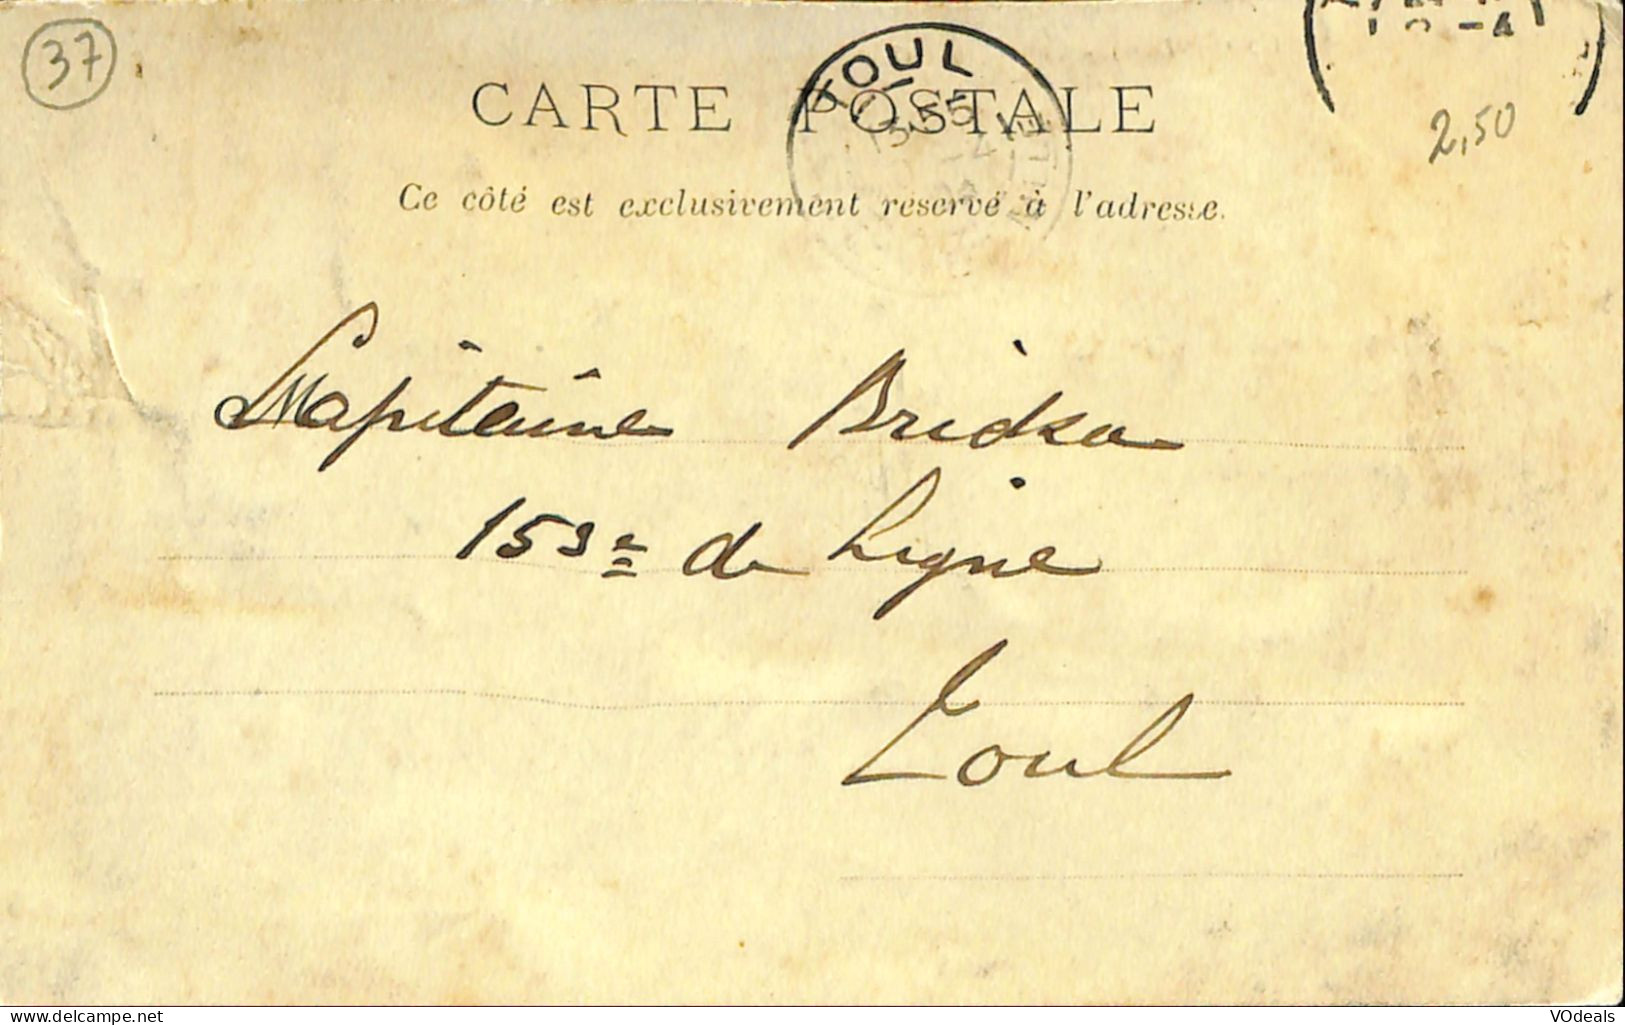 37
TOUL
CARTE POSTALE
2,50
Ce côté est exclusivement réservé à l'adresse.
Capitaine
153e de Ligne
Toul
VOdeals